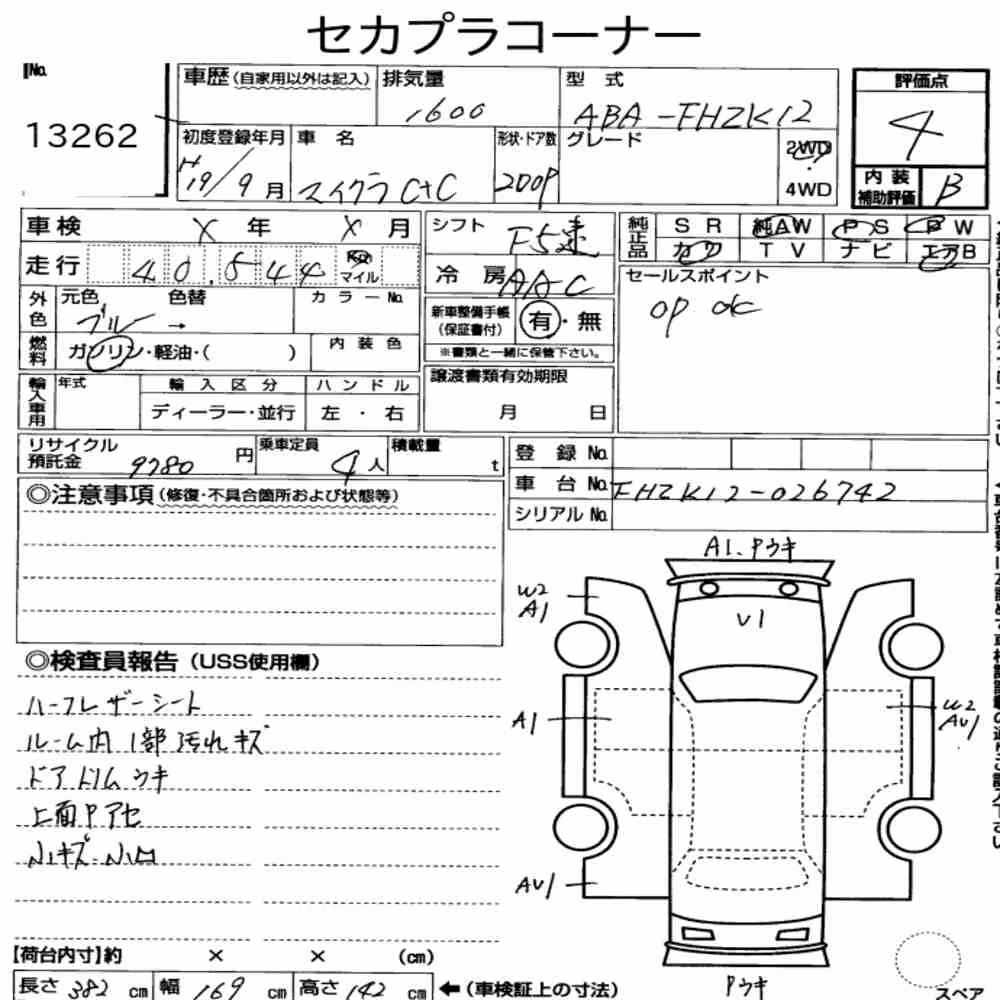 セカプラコーナー
No.
13262
車歴(自家用以外は記入)
排気量
1600
型 式
ABA-FHZK12
評価点
4
初度登録年月
H19/9月
車 名
マイクラ C+C
形状・ドア数
2DOP
グレード
2WD
4WD
内装
補助評価
B
車検 X 年 X 月
走行 40,544 Km
マイル
シフト F5速
冷 房 AAC
純正品 SR 純AW PS PW
カワ TV ナビ エアB
セールスポイント
op ok
外色 元色 色替 カラーNo.
ブルー →
新車整備手帳
(保証書付)
有・無
※書類と一緒に保管下さい。
燃料 ガソリン・軽油・( )
内装色
輸入車用 年式 輸入区分 ハンドル
ディーラー・並行 左・右
譲渡書類有効期限
月 日
リサイクル
預託金 9780 円
乗車定員 4人
積載量 t
登 録 No.
車 台 No. FHZK12-026742
シリアルNo.
◎注意事項(修復・不具合箇所および状態等)
◎検査員報告(USS使用欄)
ハーフレザーシート
ルーム内1部汚れキズ
ドアトリムウキ
上面Pアセ
小キズ・小凹
A1.Pウキ
W2
A1
U1
A1
W2
AU1
AU1
Pウキ
スペア
【荷台内寸】約 × × (cm)
長さ 382 cm 幅 169 cm 高さ 142 cm ←(車検証上の寸法)